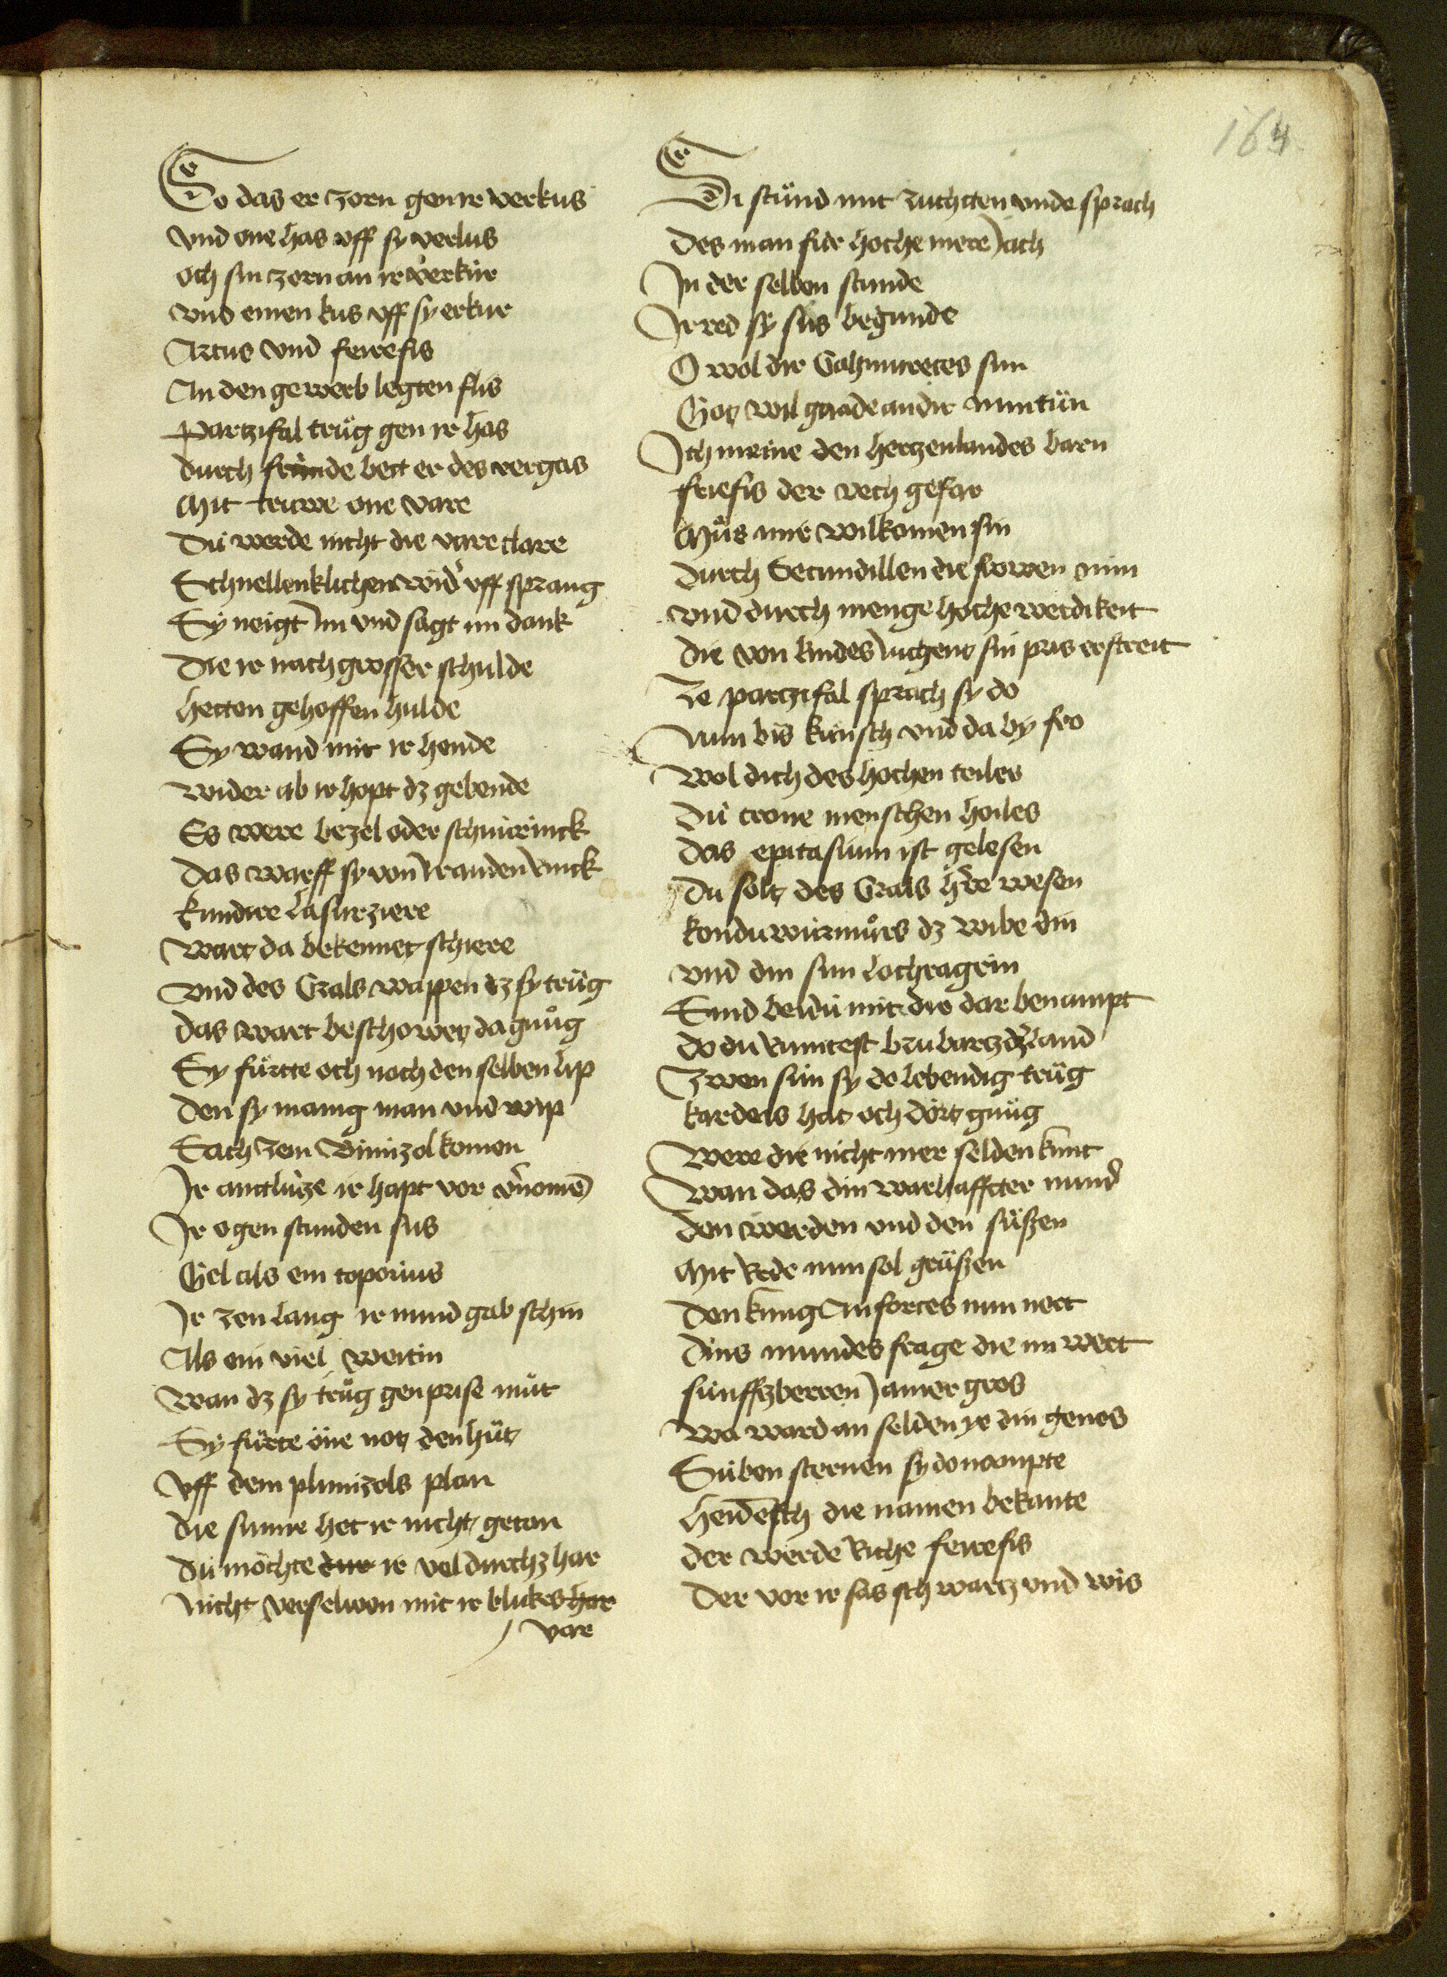 164
So das er zorn gen ir verkus
Vnd one has vff sy verlus
Och sin zorn an ir verkür
Vnd einen kus vff sy erkur
Artus vnd feirefis
An den gewerb legten flis
Partzifal trüg gen ir has
Durch fründe bett er des vergas
Mit truwe one vare
Dü werde nicht die vare clare
Schnellenklichen wid' vff sprang
Sy neigt im vnd sagt im dank
Die ir nach grosser schulde
Hetten gehoffen hulde
Sy wand mit ir hende
Wider ab ir hopt dz gebende
Es were bezel oder schnürinck
Das warff sy von ir an den rinck
Kundrie lasurziere
Wart da bekennet schiere
Vnd des Grals wappen dz sy trüg
Das wart beschowet da gnůg
Sy fürtte och noch den selben lip
Den sy manig man vnd wip
Sach zem Blimizol komen
Ir antlütze ir hapt vor v'nomē
Ir ogen stunden sus
Gel als ein toporius
Ir zen lang ir mund gab schin
Als ein viel weitin
Wan dz sy trůg gen prise můt
Sy fürte öne not den hüt
Vff dem plimizols plan
Die sunne het ir nicht getan
Dü möchte dur ir vel durch z har
Nicht verselwen mit ir blickes har
var
Si stünd mit zuchtten vnde sprach
Des man für hoche mere jach
In der selben stunde
Ir red sy sus begunde
O wol dir Gahmuretes sun
Got wil gnade an dir nun tün
Ich meine den hertzenlandes barn
Friefis der vech gefar
Můs mir wilkomen sin
Durch Secundillen die frowen min
Vnd durch menge hoche werdikeit
Die von kindes iugent sin pris erstreit
Ze partzifal sprach sy do
Nun bis künsch vnd da by fro
Wol dich des hochen teiles
Dü crone menschen heiles
Das epitafium ist gelesen
Du solt des Grals h're wesen
Konduwiirmůrs dz wibe din
Vnd din sun lochragrin
Sind beidü mit dir dar benampt
Do du rumtest brubartz dz land
Zwen sün sy do lebendig trüg
Kardeis hat och dört gnüg
Were die nicht mer selden kunt
Wan das din warhaffter mund
Den werden vnd den süßen
Mit Rede nun sol grüßen
Den kung Anfortes nun nert
Dins mundes frage die im wert
Sünfftzberren jamer gros
Wa ward an selden ye din genos
Süben sternen sy do nampte
Heidēsch die namen bekante
Der werde Riche feirefis
Der vor ir sas schwartz vnd wis